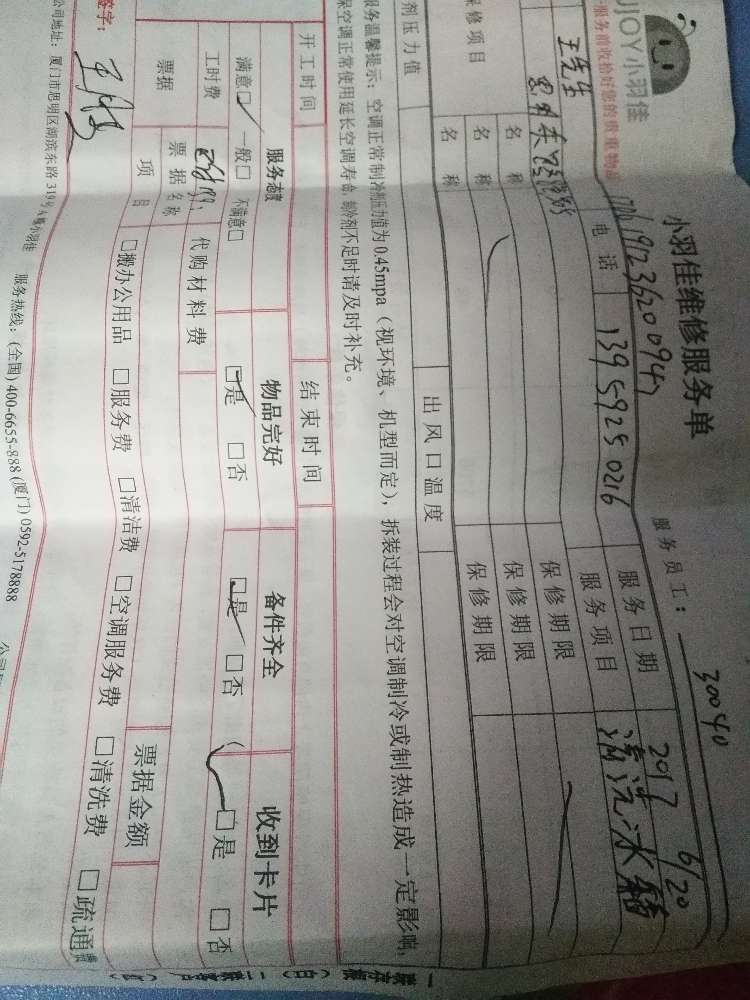 JOY小羽佳
小羽佳维修服务单
服务员工：30040
服务前收拾好您的贵重物品
1923620094
王先生
电 话
139 5925 0216
服务日期
2017 6/20
服务项目
清洗冰箱
保修项目
名 称
保修期限
名 称
保修期限
名 称
保修期限
剂压力值
出风口温度
服务温馨提示：空调正常制冷剂压力值为0.45mpa（视环境、机型而定），拆装过程会对空调制冷或制热造成一定影响，
保空调正常使用延长空调寿命，制冷剂不足时请及时补充。
开工时间
结束时间
服务态度
物品完好
备件齐全
收到卡片
满意☑ 一般□ 不满意□
☑是 □否
☑是 □否
☑是 □否
工时费
代购材料费
票据
票据名称
票据金额
项 目
□搬办公用品 □服务费 □清洁费 □空调服务费 □清洗费 □疏通费
签字：
公司地址：厦门市思明区湖滨东路319号A幢小羽佳 服务热线：(全国) 400-6655-888 (厦门) 0592-5178888